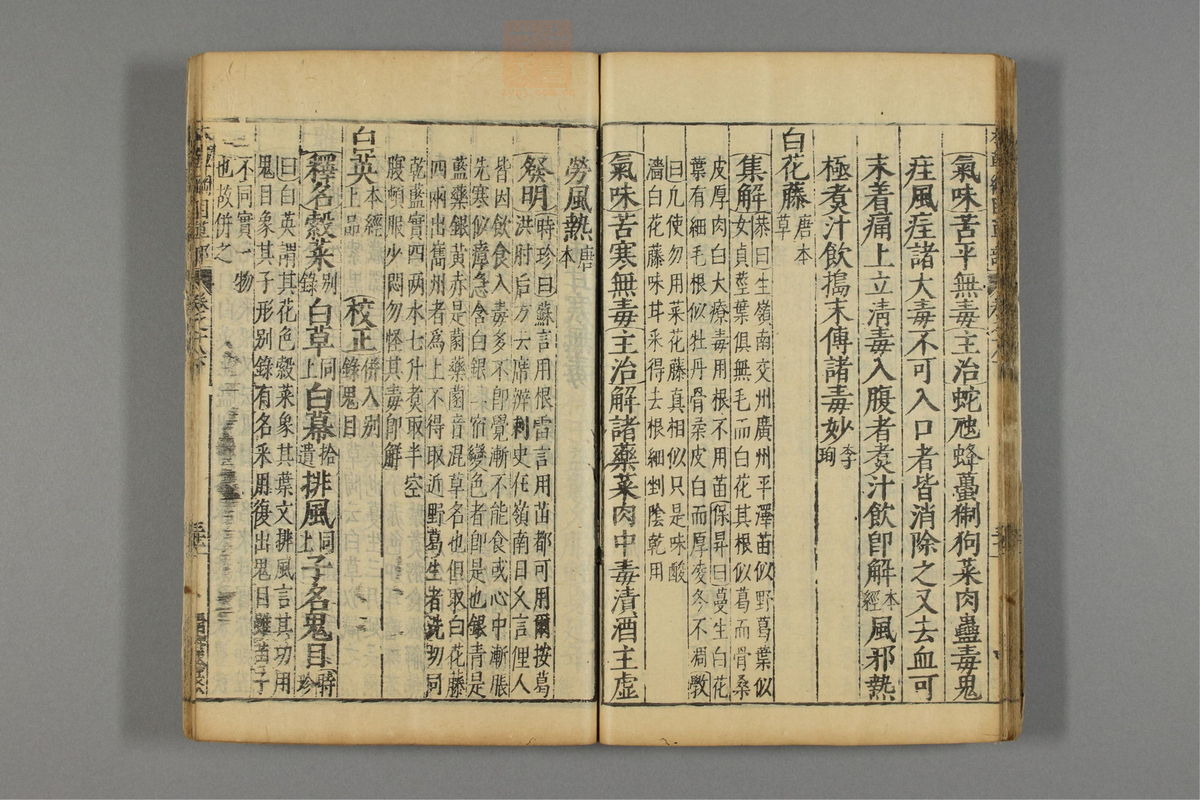 氣味苦平無毒主治蛇虺蜂蠆猘狗菜肉蠱毒鬼
疰風疰諸大毒不可入口者皆消除之又去血可
末着痛上立清毒入腹者煮汁飲卽解本經風邪熱
極煮汁飲搗末傅諸毒妙李珣
白花藤唐本草
集解恭曰生嶺南交州廣州平澤苗似野葛葉似
女貞莖葉俱無毛而白花其根似葛而骨柔
皮厚肉白大療毒用根不用苗保昇曰蔓生白花
葉有細毛根似牡丹骨柔皮白而厚凌冬不凋斆
曰凡使勿用菜花藤真相似只是味酸
濇白花藤味甘采得去根細剉陰乾用
氣味苦寒無毒主治解諸藥菜肉中毒漬酒主虛
勞風熱唐本
發明時珍曰蘇言用根雷言用苗都可用爾按葛
洪肘后方云席辨刺史在嶺南日久言俚人
皆因飲食入毒多不卽覺漸不能食或心中漸脹
先寒似瘴急含白銀一宿變色者卽是也銀青是
藍藥銀黃赤是菌藥菌音混草名也但取白花藤
四兩出雟州者爲上不得取近野葛生者洗切同
乾藍實四兩水七升煮取半空
腹頓服少悶勿怪其毒卽解
白英本經上品 校正併入別錄鬼目
釋名縠菜別錄白草同上白幕拾遺排風同上子名鬼目時珍
曰白英謂其花色縠菜象其葉文排風言其功用
鬼目象其子形別錄有名未用復出鬼目雖苗子
不同實一物
也故併之